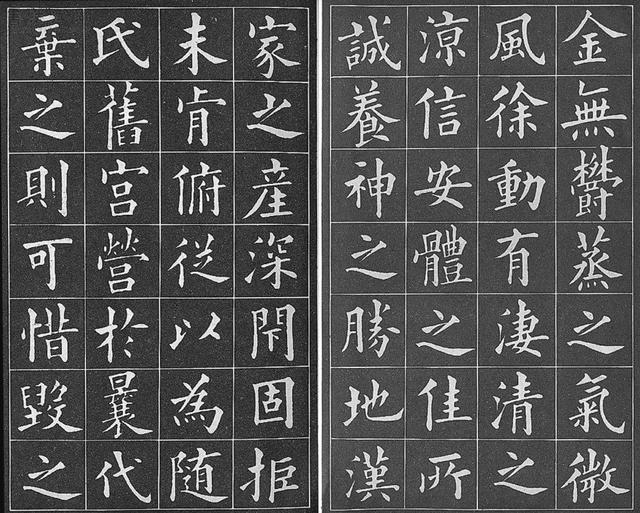 金無欝蒸之氣微
風徐動有淒清之
涼信安體之佳所
誠養神之勝地漢
家之產深閇固拒
未肯俯從以為隨
氏舊宮營於曩代
棄之則可惜毀之